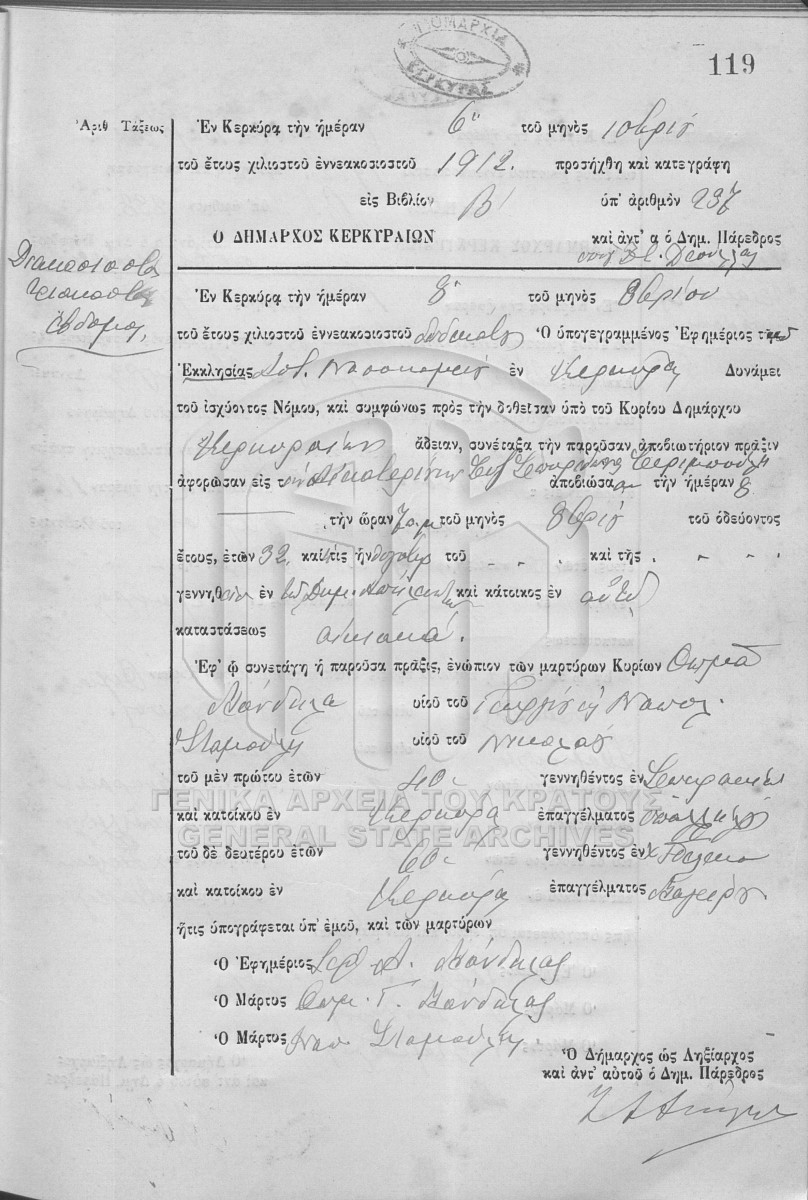 ΔΗΜΑΡΧΙΑ
ΚΕΡΚΥΡΑΣ
119
Ἀριθ Τάξεως
Ἐν Κερκύρᾳ τὴν ἡμέραν 6 τοῦ μηνὸς 10βρίου
τοῦ ἔτους χιλιοστοῦ ἐννεακοσιοστοῦ 1912. προσήχθη καὶ κατεγράφη
εἰς Βιβλίον Β' ὑπ' ἀριθμὸν 237
Ο ΔΗΜΑΡΧΟΣ ΚΕΡΚΥΡΑΙΩΝ καὶ ἀντ' α ὁ Δημ. Πάρεδρος
Διακοσιοστὸν
τριακοστὸν
ἕβδομον,
Ἐν Κερκύρᾳ τὴν ἡμέραν 8 τοῦ μηνὸς 8βρίου
τοῦ ἔτους χιλιοστοῦ ἐννεακοσιοστοῦ δωδεκάτου Ὁ ὑπογεγραμμένος Ἐφημέριος τοῦ
Ἐκκλησίας Νοσοκομείου ἐν Κερκύρᾳ Δυνάμει
τοῦ ἰσχύοντος Νόμου, καὶ συμφώνως πρὸς τὴν δοθεῖσαν ὑπὸ τοῦ Κυρίου Δημάρχου
Κερκυραίων ἄδειαν, συνέταξα τὴν παροῦσαν ἀποβιωτήριον πρᾶξιν
ἀφορῶσαν εἰς τὴν Αἰκατερίνην Σπυρίδωνος ἀποβιώσασαν τὴν ἡμέραν 8
τὴν ὥραν 7 π.μ τοῦ μηνὸς 8βρίου τοῦ ὁδεύοντος
ἔτους, ἐτῶν 32, καὶ τις ἦν θυγάτηρ τοῦ - - - καὶ τῆς - - -
γεννηθεῖσαν ἐν καὶ κάτοικος ἐν
καταστάσεως οἰκιακά.
Ἐφ' ᾧ συνετάγη ἡ παροῦσα πρᾶξις, ἐνώπιον τῶν μαρτύρων Κυρίων Θωμᾶ
Μάνδηλα υἱοῦ τοῦ Γεωργίου καὶ Ναπολ.
Σταμούλη υἱοῦ τοῦ Νικολάου
τοῦ μὲν πρώτου ἐτῶν 40 - γεννηθέντος ἐν
καὶ κατοίκου ἐν Κερκύρᾳ ἐπαγγέλματος
τοῦ δὲ δευτέρου ἐτῶν 60 - γεννηθέντος ἐν
καὶ κατοίκου ἐν Κερκύρᾳ ἐπαγγέλματος Μαγείρου
ἥτις ὑπογράφεται ὑπ' ἐμοῦ, καὶ τῶν μαρτύρων
Ὁ Ἐφημέριος Μάνδηλας
Ὁ Μάρτυς Θωμ. Γ. Μάνδηλας
Ὁ Μάρτυς Ναπ Σταμούλης
Ὁ Δήμαρχος ὡς Ληξίαρχος
καὶ ἀντ' αὐτοῦ ὁ Δημ. Πάρεδρος
ΓΕΝΙΚΑ ΑΡΧΕΙΑ ΤΟΥ ΚΡΑΤΟΥΣ
GENERAL STATE ARCHIVES